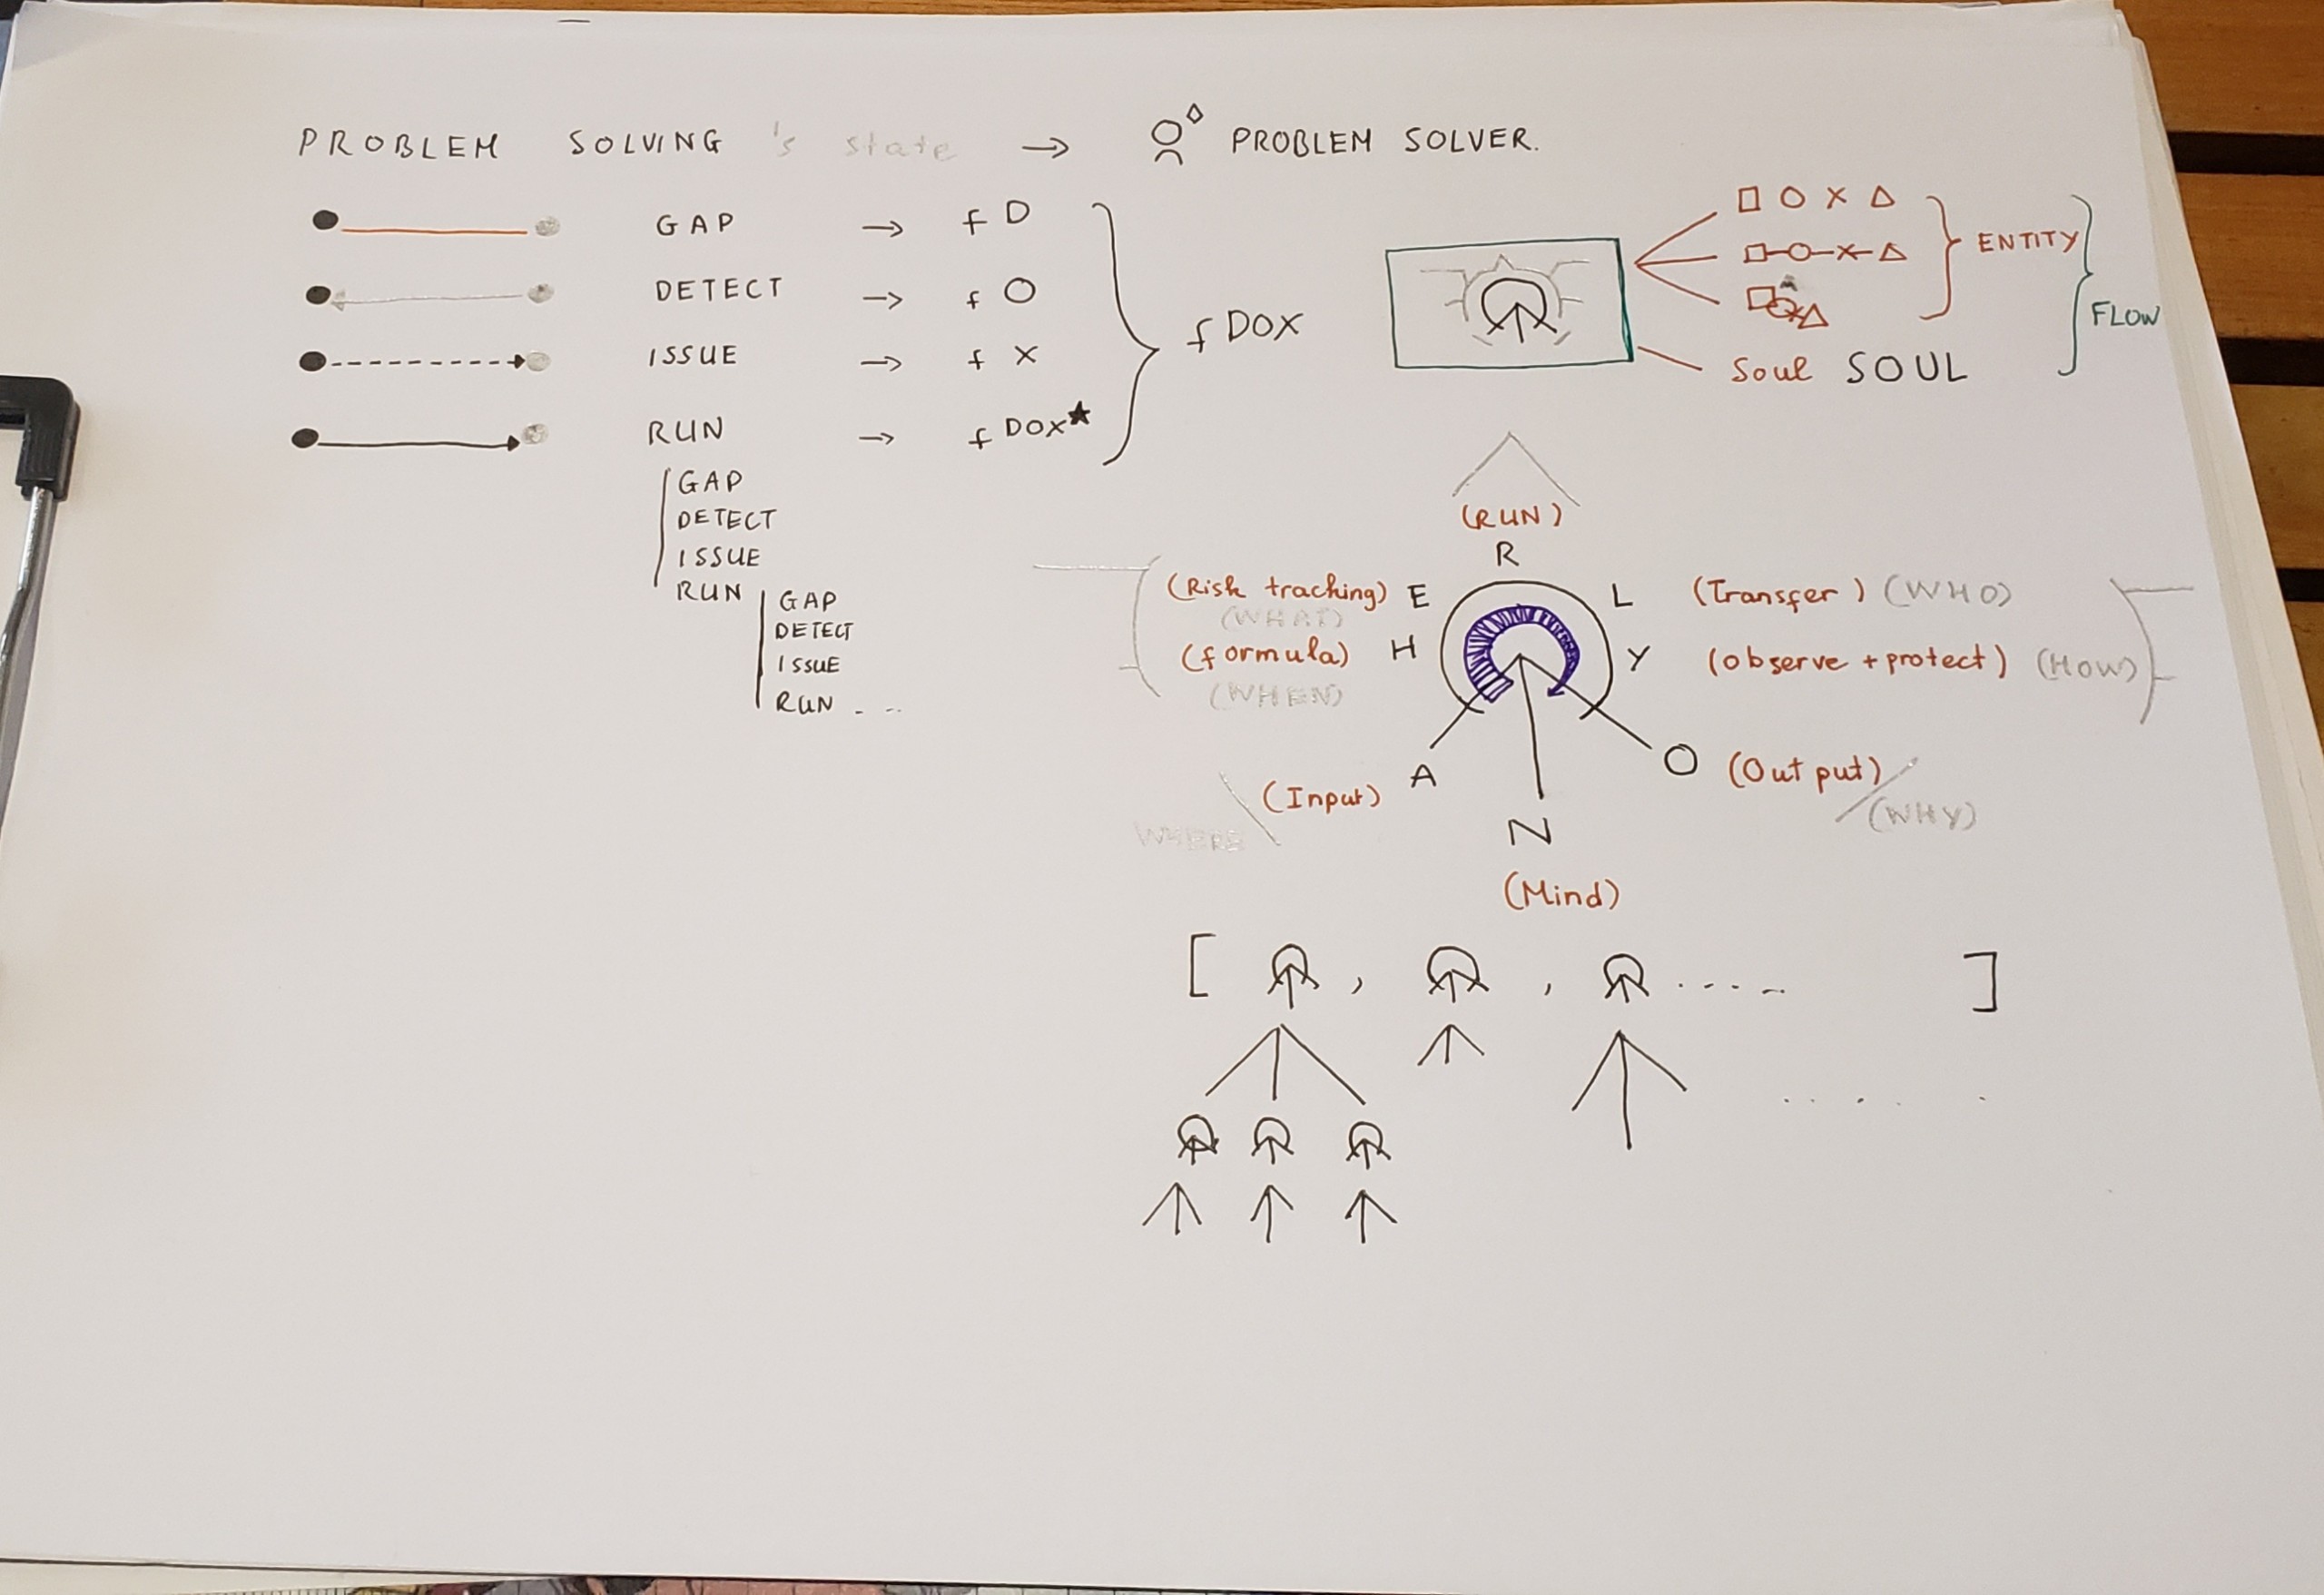 PROBLEM SOLVING 's state → PROBLEM SOLVER.
GAP → f D
DETECT → f O
ISSUE → f X
RUN → f DOX★
f DOX
GAP
DETECT
ISSUE
RUN
GAP
DETECT
ISSUE
RUN . ..
□ O X △
□-O-X-△
ENTITY
FLOW
Soul SOUL
(RUN)
R
(Risk tracking) E
(WHAT)
(formula) H
(WHEN)
L (Transfer) (WHO)
Y (observe + protect) (HOW)
(Input) A
WHERE
O (Output)
(WHY)
N
(Mind)
[ , , ..... ]